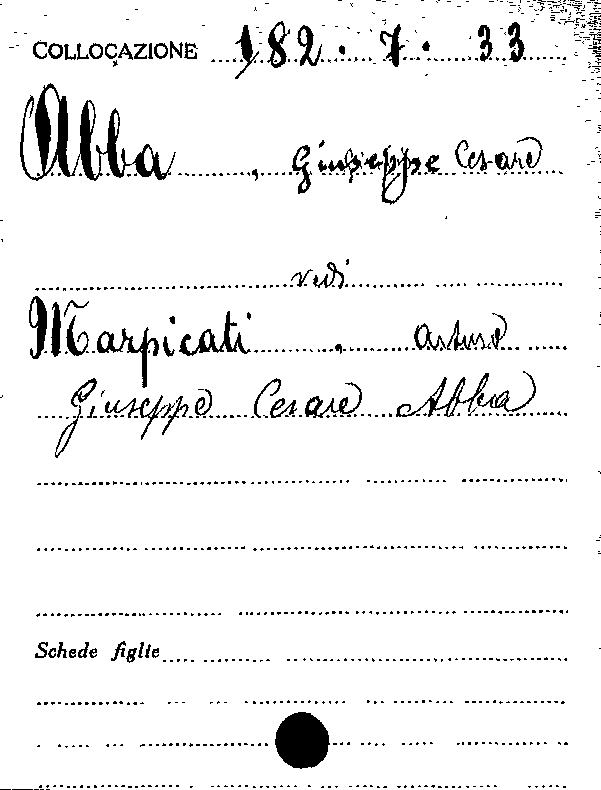 COLLOCAZIONE 182.7.33
Abba, Giuseppe Cesare
vedi
Marpicati, Arturo
Giuseppe Cesare Abba
Schede figlie